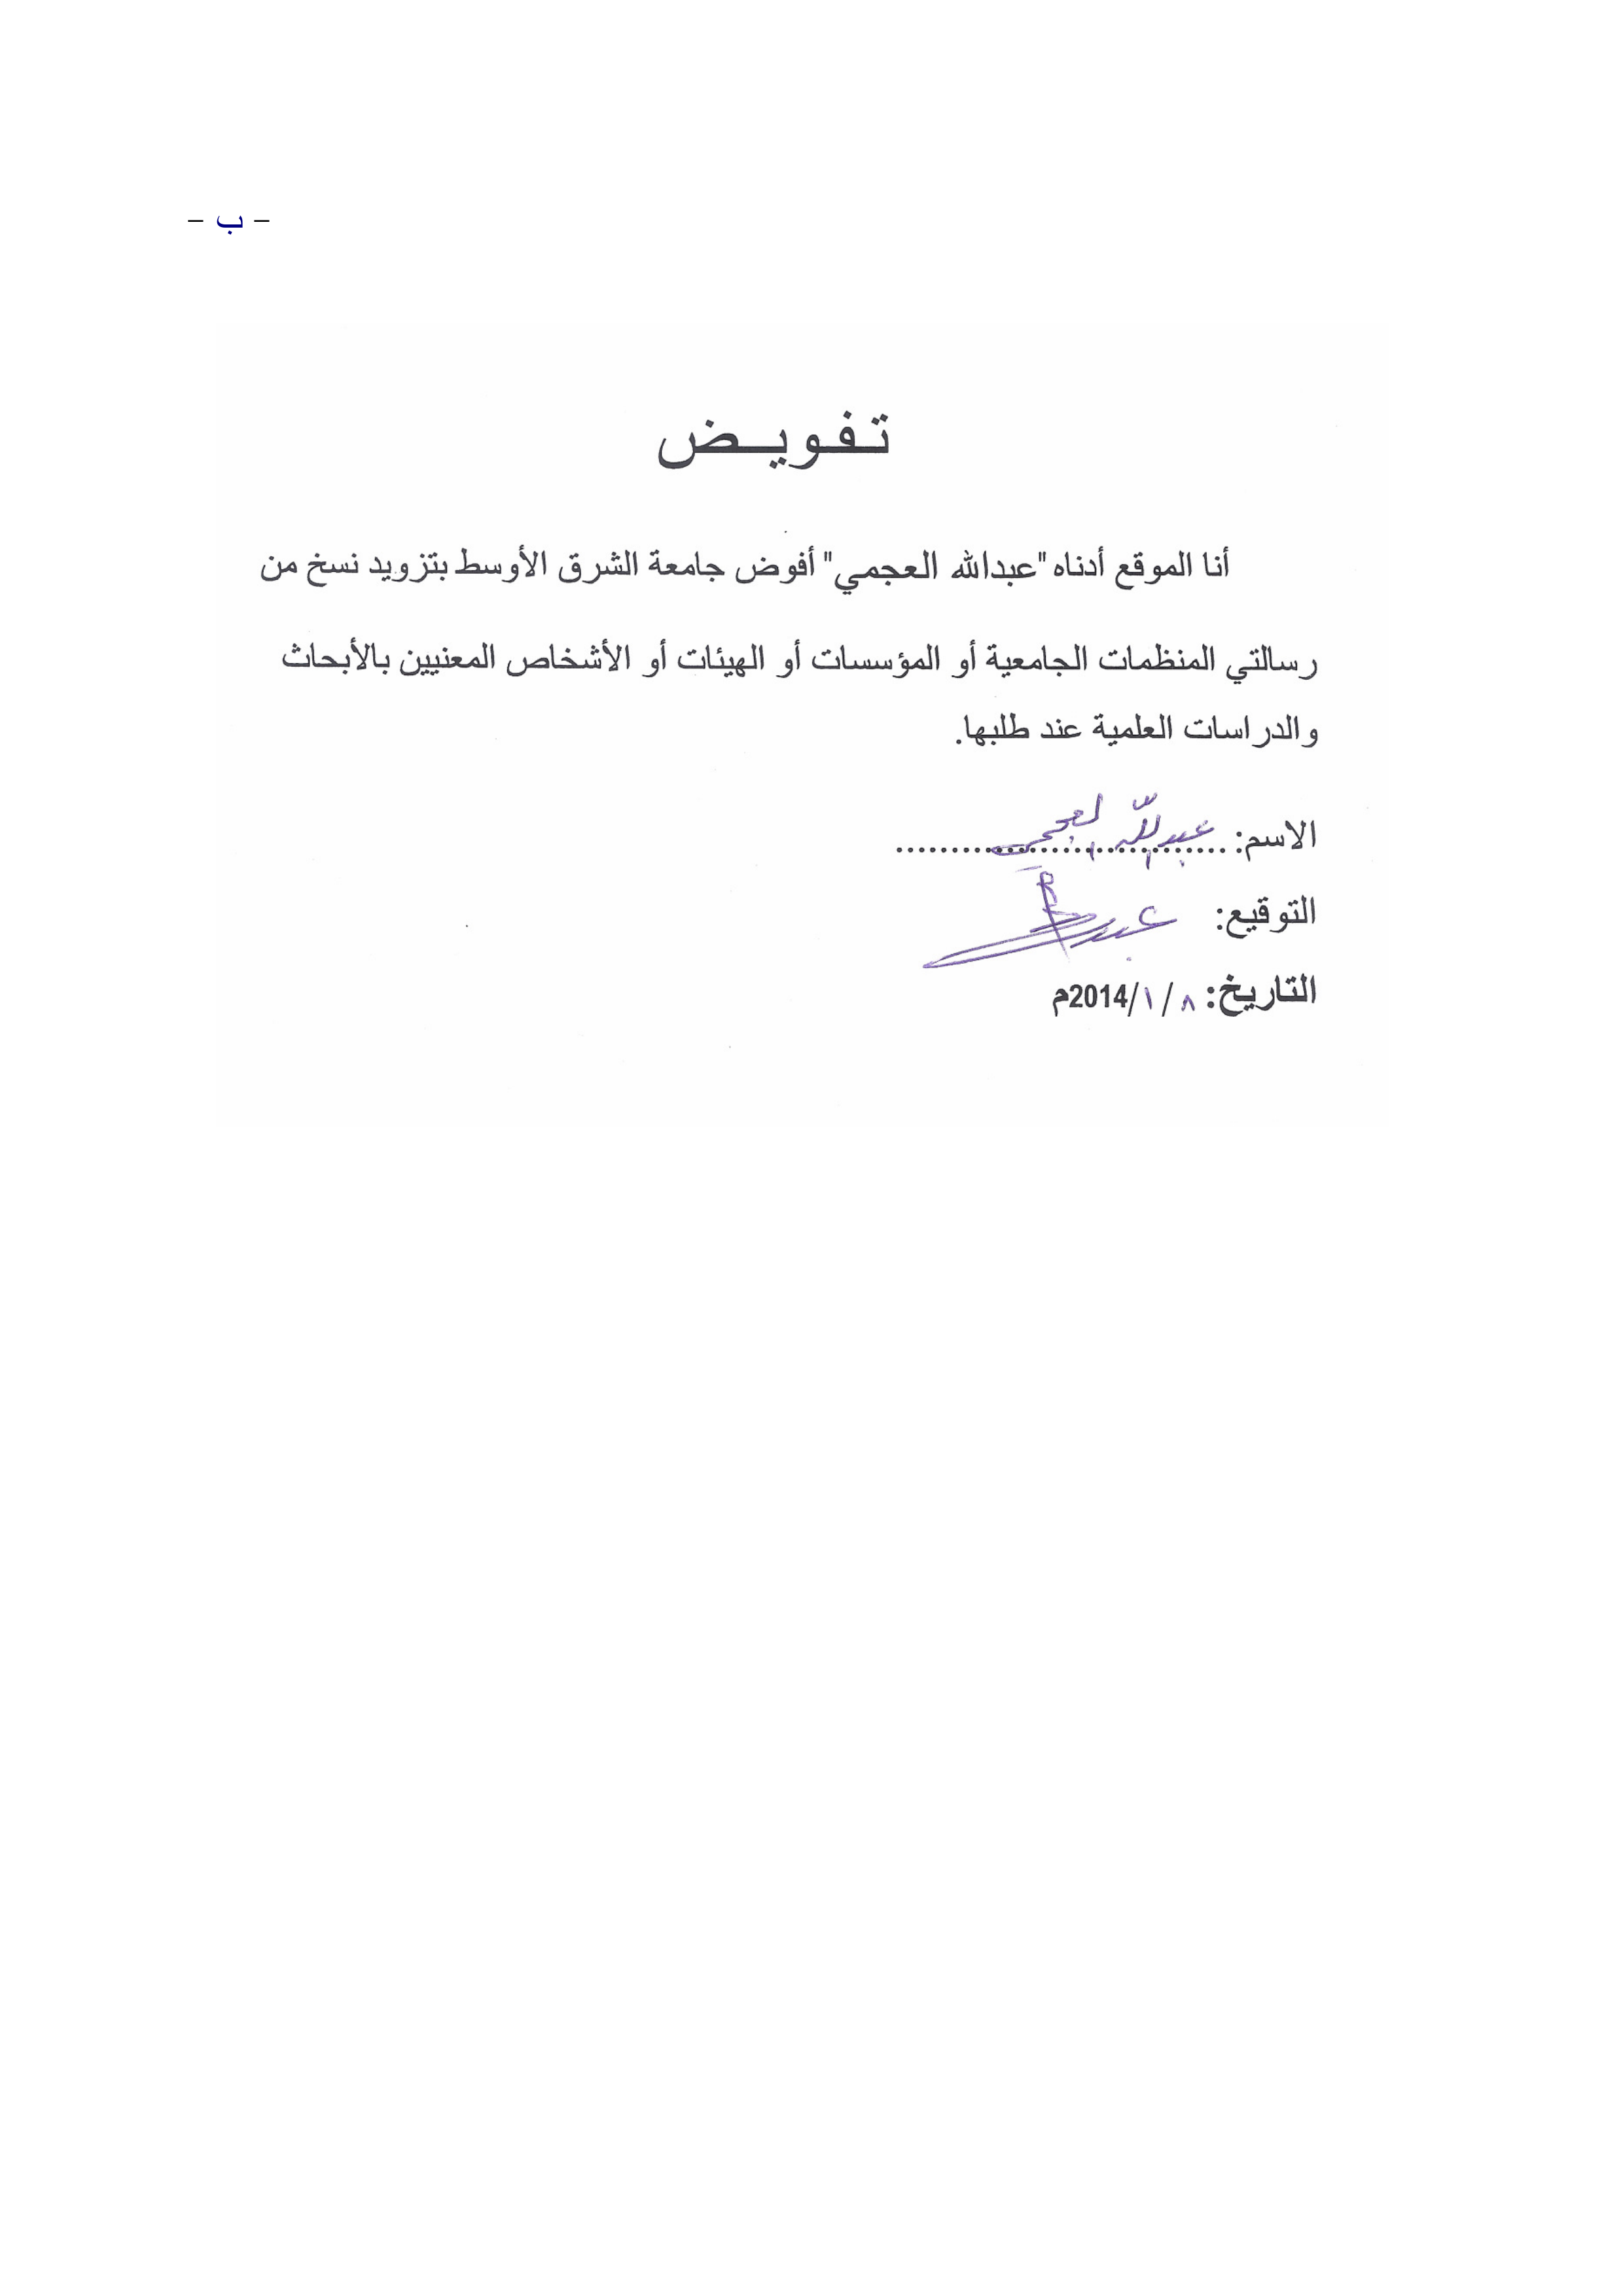 - ب -
تـفـويــض
أنا الموقع أدناه "عبدالله العجمي" أفوض جامعة الشرق الأوسط بتزويد نسخ من
رسالتي المنظمات الجامعية أو المؤسسات أو الهيئات أو الأشخاص المعنيين بالأبحاث
والدراسات العلمية عند طلبها.
الاسم: عبدالله العجمي
التوقيع:
التاريخ: ٨ / ١ /2014م